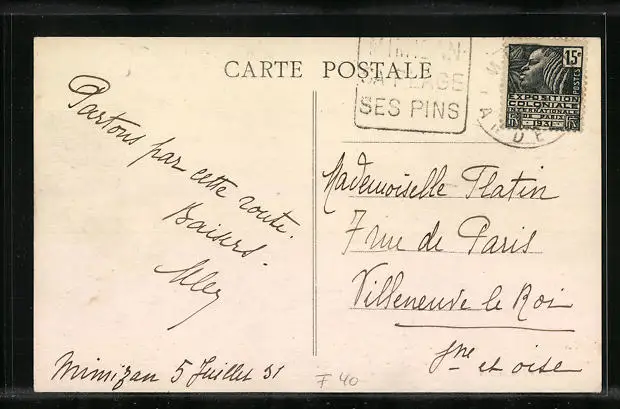 CARTE POSTALE
MIMIZAN
SA PLAGE
SES PINS
15c
POSTES
EXPOSITION
COLONIALE
INTERNATIONALE
PARIS
1931
LANDES
Partons par cette route.
Baisers.
Mimizan 5 Juillet 31
Mademoiselle Platin
7 rue de Paris
Villeneuve le Roi
Sne et oise
F 40